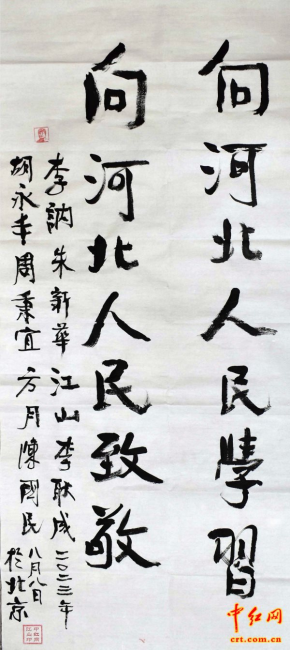 向河北人民學習
向河北人民致敬
李訥 朱新華 江山 李耿成 二〇二三年
胡永丰 周秉宜 方月 陳國民 八月八日
於北京
中红网
crt.com.cn